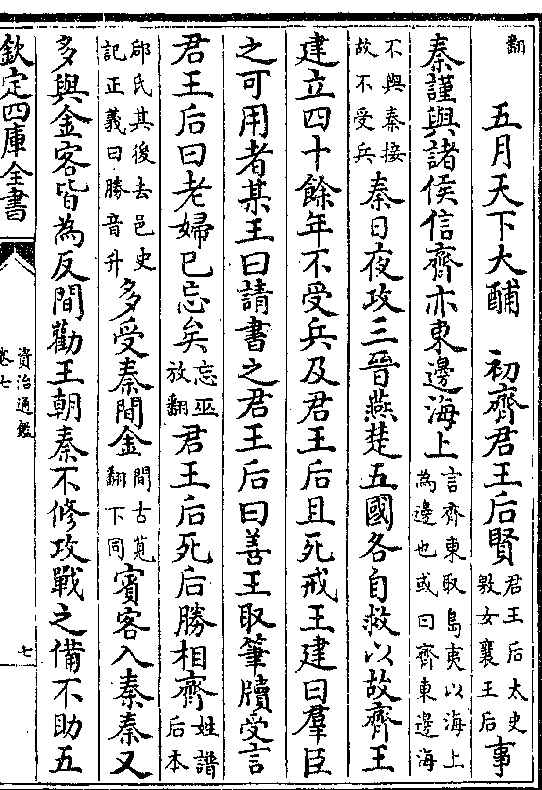 翻
五月天下大酺　初齊君王后賢君王后太史敫女襄王后事
秦謹與諸侯信齊亦東邊海上言齊東取島夷以海上為邊也或曰齊東邊海
不與秦接故不受兵秦日夜攻三晉燕楚五國各自救以故齊王
建立四十餘年不受兵及君王后且死戒王建曰羣臣
之可用者某王曰請書之君王后曰善王取筆牘受言
君王后曰老婦已忘矣忘巫放翻君王后死后勝相齊姓譜后本
郈氏其後去邑史記正義曰勝音升多受秦間金間古莧翻下同賓客入秦秦又
多與金客皆為反間勸王朝秦不修攻戰之備不助五
欽定四庫全書
資治通鑑
卷七
七